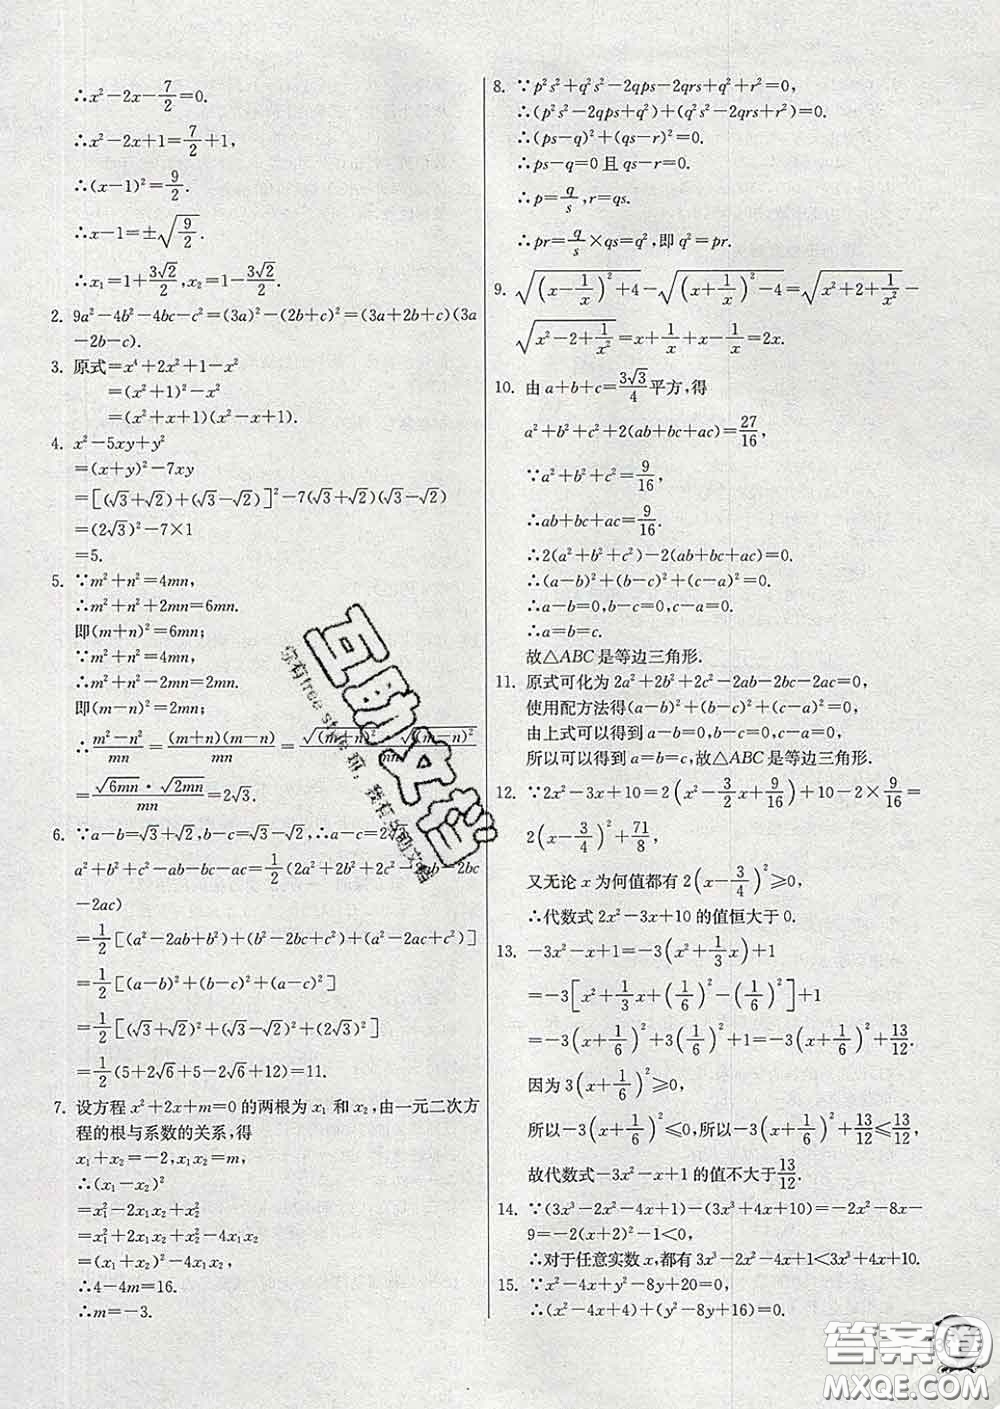 ∴x²-2x-7/2=0.
∴x²-2x+1=7/2+1,
∴(x-1)²=9/2.
∴x-1=±√(9/2).
∴x₁=1+3√2/2,x₂=1-3√2/2.
2. 9a²-4b²-4bc-c²=(3a)²-(2b+c)²=(3a+2b+c)(3a
-2b-c).
3. 原式=x⁴+2x²+1-x²
=(x²+1)²-x²
=(x²+x+1)(x²-x+1).
4. x²-5xy+y²
=(x+y)²-7xy
=[(√3+√2)+(√3-√2)]²-7(√3+√2)(√3-√2)
=(2√3)²-7×1
=5.
5. ∵m²+n²=4mn,
∴m²+n²+2mn=6mn.
即(m+n)²=6mn;
∵m²+n²=4mn,
∴m²+n²-2mn=2mn.
即(m-n)²=2mn;
∴(m²-n²)/mn=(m+n)(m-n)/mn=√(m+n)² √(m-n)²/mn
=√6mn·√2mn/mn=2√3.
6. ∵a-b=√3+√2,b-c=√3-√2,∴a-c=2√3
a²+b²+c²-ab-bc-ac=1/2(2a²+2b²+2c²-2ab-2bc
-2ac)
=1/2[(a²-2ab+b²)+(b²-2bc+c²)+(a²-2ac+c²)]
=1/2[(a-b)²+(b-c)²+(a-c)²]
=1/2[(√3+√2)²+(√3-√2)²+(2√3)²]
=1/2(5+2√6+5-2√6+12)=11.
7. 设方程x²+2x+m=0的两根为x₁和x₂,由一元二次方
程的根与系数的关系,得
x₁+x₂=-2,x₁x₂=m,
∴(x₁-x₂)²
=x₁²-2x₁x₂+x₂²
=x₁²+2x₁x₂+x₂²-4x₁x₂
=(x₁+x₂)²-4x₁x₂,
∴4-4m=16.
∴m=-3.
8. ∵p²s²+q²s²-2qps-2qrs+q²+r²=0,
∴(p²s²-2qps+q²)+(q²s²-2qrs+r²)=0.
∴(ps-q)²+(qs-r)²=0.
∴ps-q=0且qs-r=0.
∴p=q/s,r=qs.
∴pr=q/s×qs=q²,即q²=pr.
9. √((x-1/x)²+4)-√((x+1/x)²-4)=√(x²+2+1/x²)
-√(x²-2+1/x²)=x+1/x+x-1/x=2x.
10. 由a+b+c=3√3/4平方,得
a²+b²+c²+2(ab+bc+ac)=27/16,
∵a²+b²+c²=9/16,
∴ab+bc+ac=9/16.
∴2(a²+b²+c²)-2(ab+bc+ac)=0.
∴(a-b)²+(b-c)²+(c-a)²=0.
∴a-b=0,b-c=0,c-a=0.
∴a=b=c.
故△ABC是等边三角形.
11. 原式可化为2a²+2b²+2c²-2ab-2bc-2ac=0,
使用配方法得(a-b)²+(b-c)²+(c-a)²=0,
由上式可以得到a-b=0,b-c=0,c-a=0,
所以可以得到a=b=c,故△ABC是等边三角形.
12. ∵2x²-3x+10=2(x²-3/2x+9/16)+10-2×9/16=
2(x-3/4)²+71/8,
又无论x为何值都有2(x-3/4)²≥0,
∴代数式2x²-3x+10的值恒大于0.
13. -3x²-x+1=-3(x²+1/3x)+1
=-3[x²+1/3x+(1/6)²-(1/6)²]+1
=-3(x+1/6)²+3(1/6)²+1=-3(x+1/6)²+13/12.
因为3(x+1/6)²≥0,
所以-3(x+1/6)²≤0,所以-3(x+1/6)²+13/12≤13/12,
故代数式-3x²-x+1的值不大于13/12.
14. ∵(3x³-2x²-4x+1)-(3x³+4x+10)=-2x²-8x-
9=-2(x+2)²-1<0,
∴对于任意实数x,都有3x³-2x²-4x+1<3x³+4x+10.
15. ∵x²-4x+y²-8y+20=0,
∴(x²-4x+4)+(y²-8y+16)=0.
互助文档
答案圈
MXQE.COM